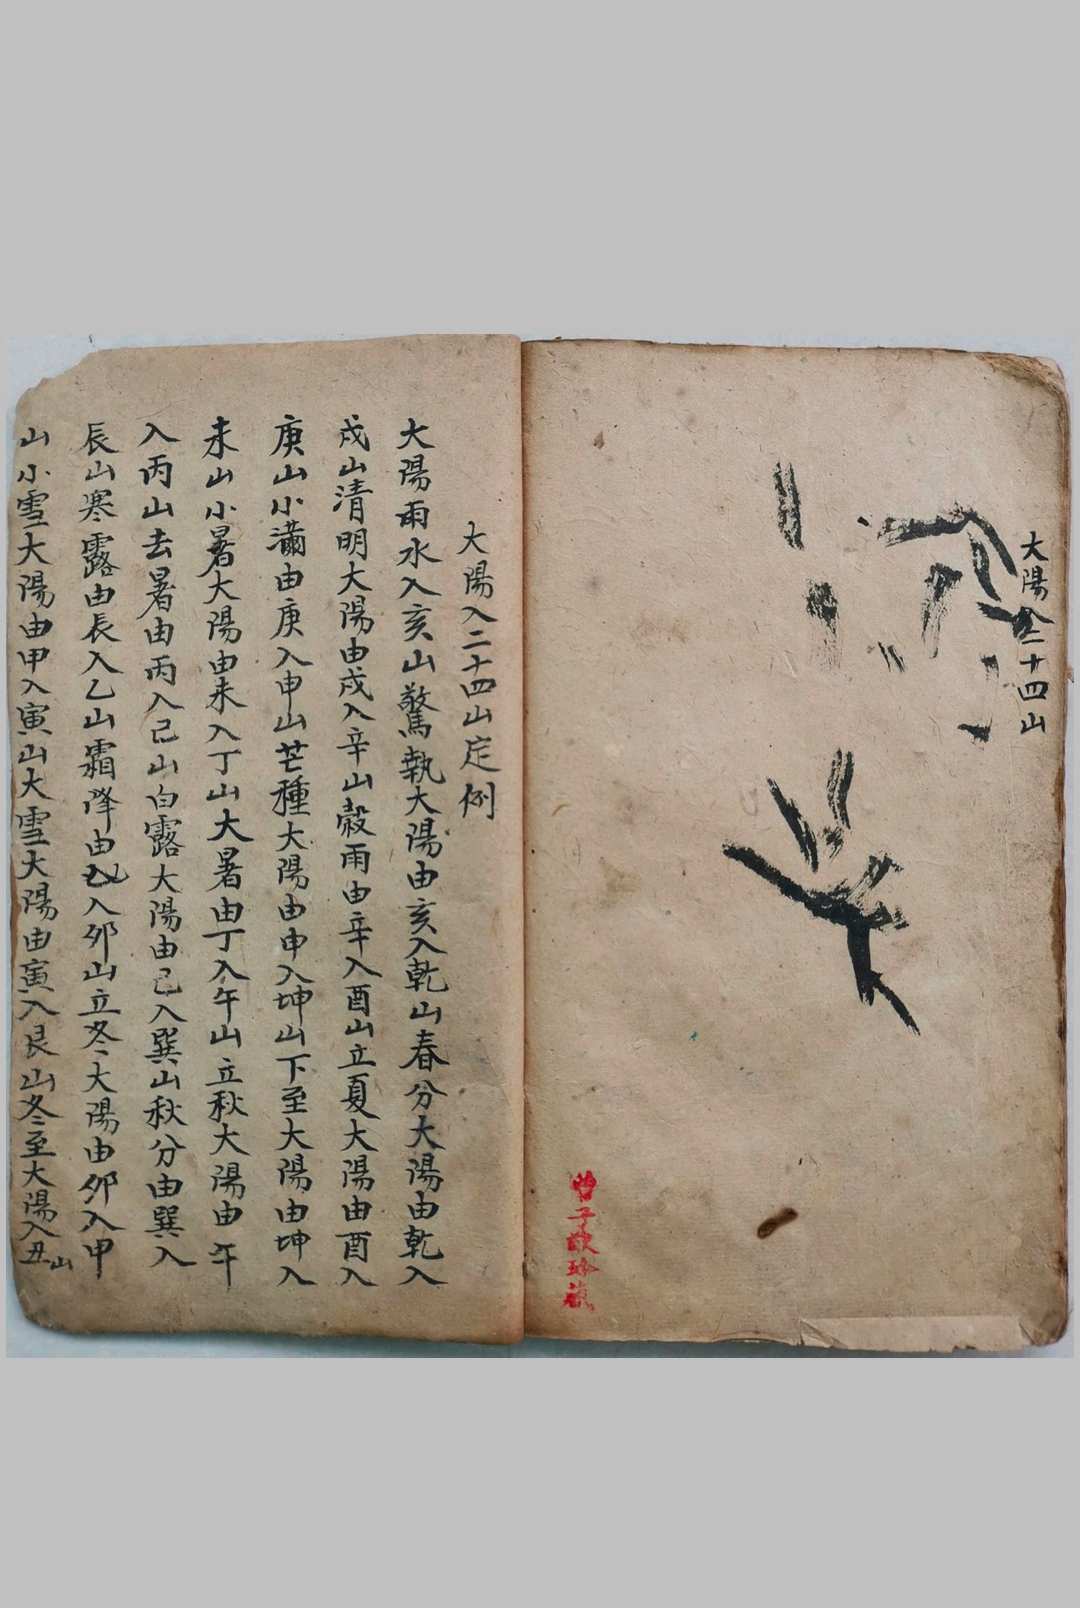 大陽入二十四山
大陽入二十四山定例
大陽雨水入亥山驚執大陽由亥入乾山春分大陽由乾入
戍山清明大陽由戍入辛山榖雨由辛入酉山立夏大陽由酉入
庚山小滿由庚入申山芒種大陽由申入坤山下至大陽由坤入
未山小暑大陽由未入丁山大暑由丁入午山立秋大陽由午
入丙山去暑由丙入己山白露大陽由己入巽山秋分由巽入
辰山寒露由辰入乙山霜降由乙入卯山立冬大陽由卯入甲
山小雪大陽由甲入寅山大雪大陽由寅入艮山冬至大陽入丑山